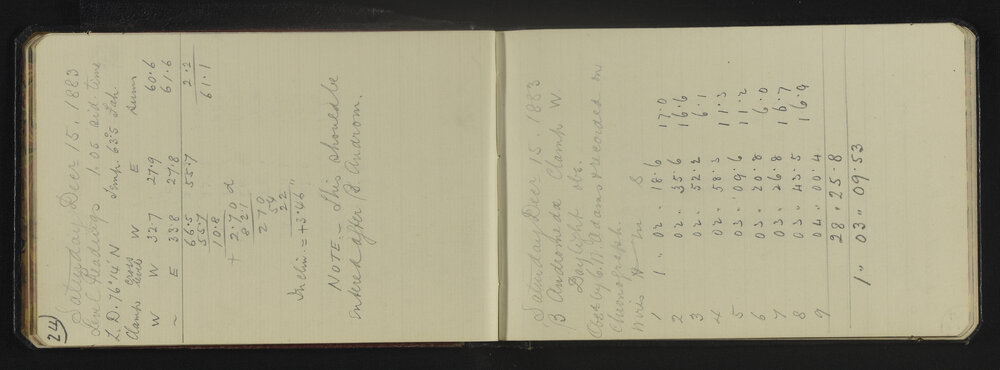 24)
Saturday Decr 15, 1883
Level Readings 1.05 sid time
Z. D. 76° 14' N Temp. 63°5 Fah
Clamps Cross levels W E Sums
W W 32.7 27.9 60.6
~ E 33.8 27.8 61.6
66.5 55.7 2.2
55.7 61.1
10.8
+ 2.70 d
821
270
54
22
Inclin: = +3.46"
NOTE. - This should be
entered after β Androm.
Saturday Decr 15. 1883
β Andromeda Clamp W.
Daylight obs.
Obsd by C. T. Adams & recorded on
Chronograph.
Wires H m S
1 1" 02" 18.6 17.0
2 02" 35.6 16.6
3 02" 52.2 6.1
4 02" 58.3 11.3
5 03" 09.6 11.2
6 03" 20.8 6.0
7 03" 26.8 16.7
8 03" 43.5 16.9
9 04" 00.4
28" 25.8
1" 03" 09.53